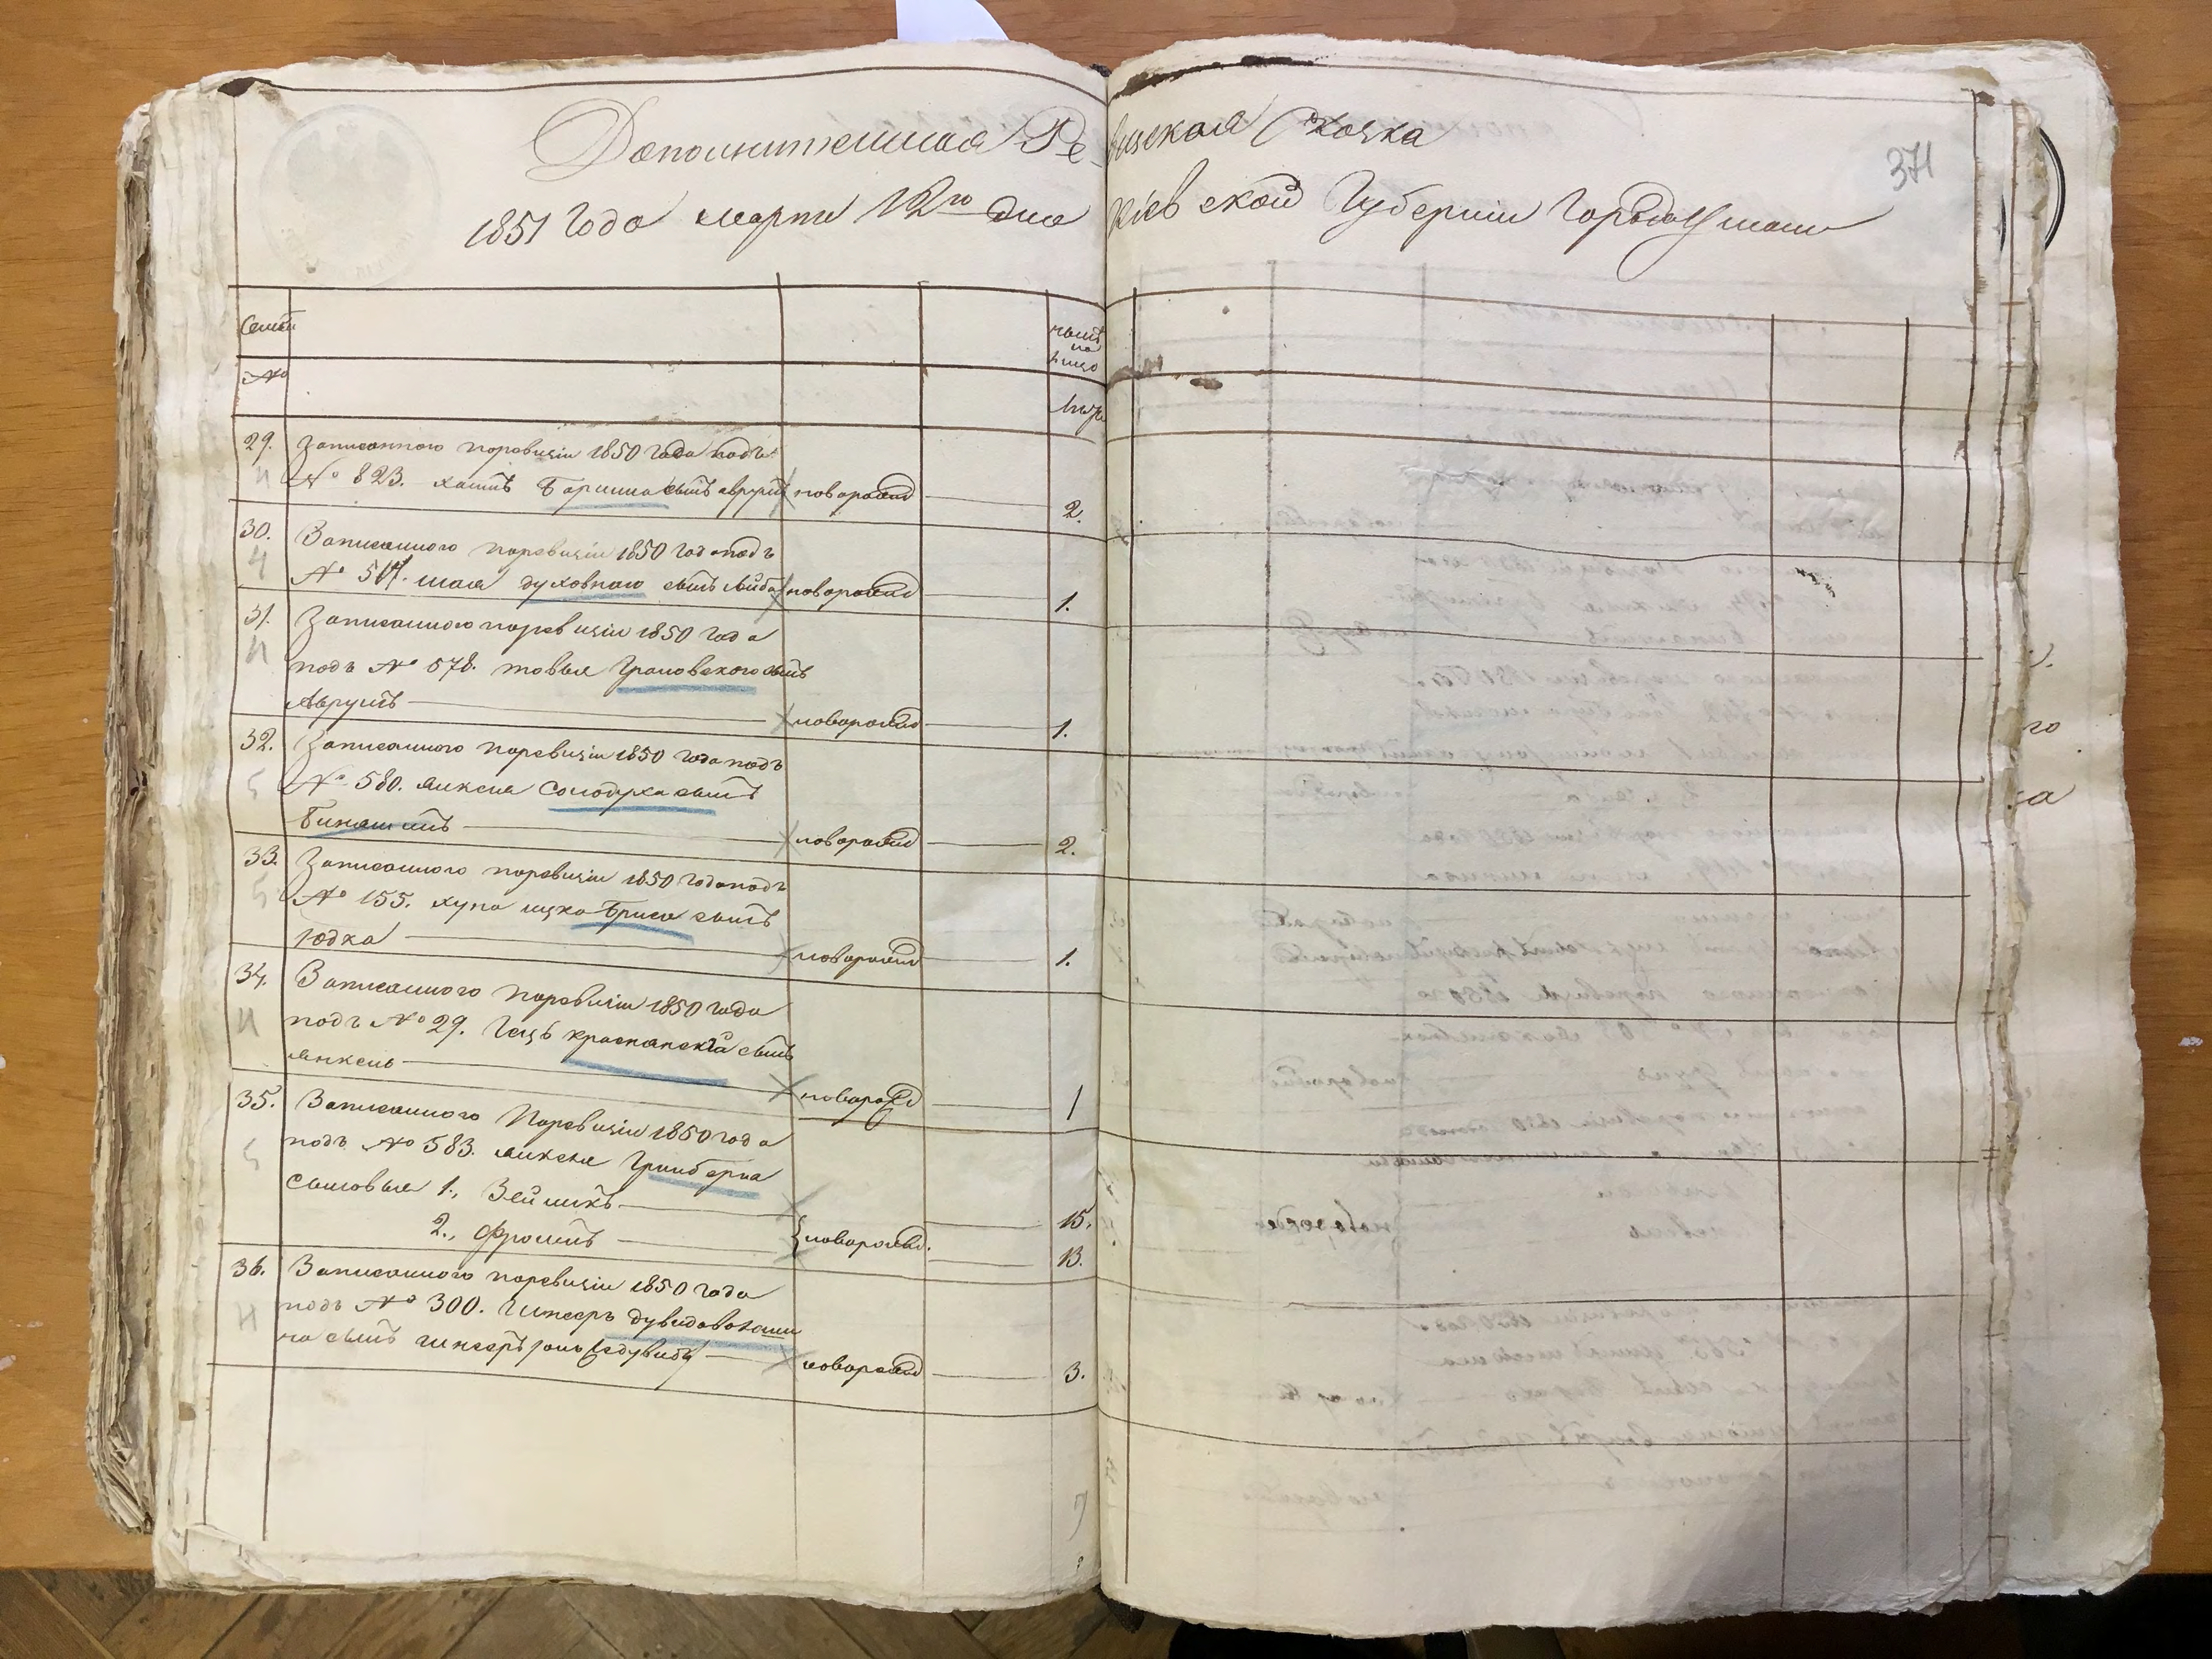 Дополнительная Ревизская Сказка
371
1851 Года Марта 12го Дня Кіевской Губерніи Города Умани
Семей
№
нынѣ
на
лицо
лѣта
29. Записанного поревизіи 1850 года подъ
№ 823. хаимъ Боришпа сынъ аврумъ новорожд 2.
30. Записанного поревизіи 1850 года подъ
№ 517. шая духовнаго сынъ лейба новорожд 1.
31. Записанного поревизіи 1850 года
подъ № 578. товья Грановского сынъ
Аврумъ новорожд 1.
32. Записанного поревизіи 1850 года подъ
№ 580. янкеля Солодука сынъ
Биняминъ новорожд 2.
33. Записанного поревизіи 1850 года подъ
№ 155. хуна ицко Бриса сынъ
Юдка новорожд 1.
34. Записанного поревизіи 1850 года
подъ № 29. Герць краснянскій сынъ
янкель новорожд 1
35. Записанного Поревизіи 1850 года
подъ № 583. янкеля Гринберга
сыновья 1., Зейликъ 15.
2., Фроимъ новорожд. 13.
36. Записанного поревизіи 1850 года
подъ № 300. Шмееръ дувидовъ
на сынъ новорожд 3.